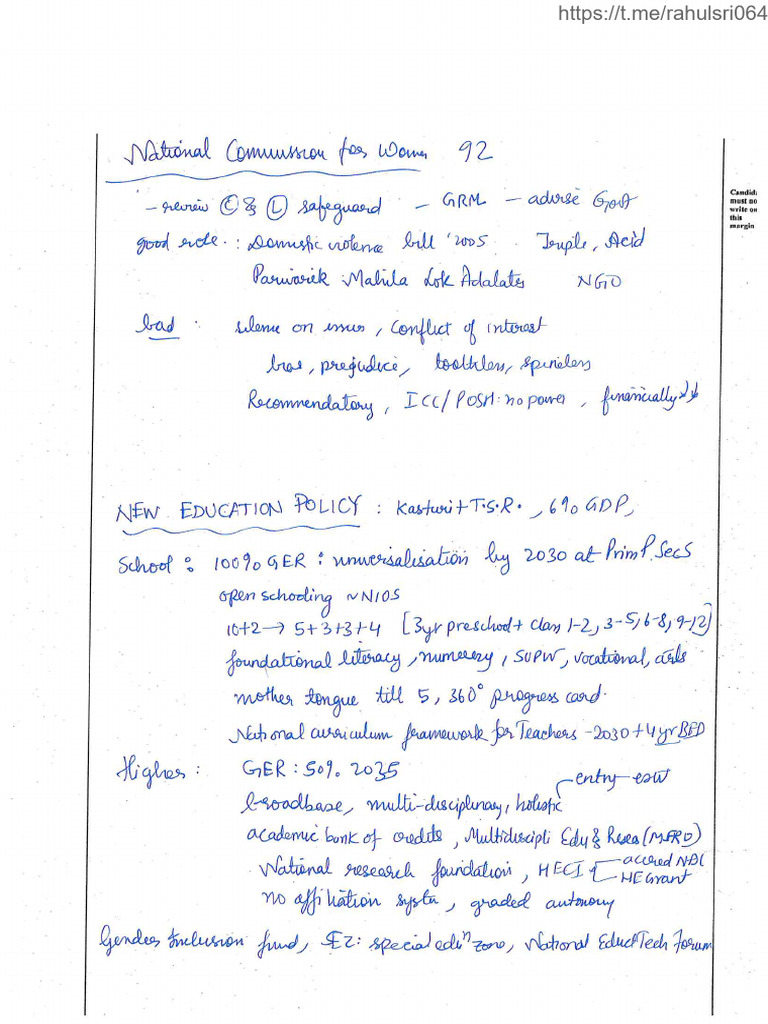 https://t.me/rahulsri064
National Commission for Women 92
Candid:
must no
write on
this
margin
- review Ⓒ & Ⓛ safeguard - GRM - advise Govt
good role : Domestic violence bill '2005 Triple, Acid
Parivarik Mahila Lok Adalates NGO
bad : silence on issues, conflict of interest
bias, prejudice, toothless, spineless
Recommendatory, ICC/POSH: no power, financially ↓↓
NEW EDUCATION POLICY : Kasturi + T.S.R. , 6% GDP,
School : 100% GER : universalisation by 2030 at Prim P. SecS
open schooling ~ NIOS
10+2 → 5+3+3+4 [3yr preschool + class 1-2, 3-5, 6-8, 9-12]
foundational literacy, numeracy, SUPW, vocational, arts
mother tongue till 5, 360° progress card.
National curriculum framework for Teachers - 2030 + 4 yr BED
Higher : GER : 50% 2035
entry-exit
broadbase, multi-disciplinary, holistic
academic bank of credits, Multidiscipli Edu & Resea (MERU)
National research foundation, HECI
accred NAC
HE Grant
no affiliation syste, graded autonomy
Gender Inclusion fund, SEZ: special eduⁿ zone, National Educt Tech Forum